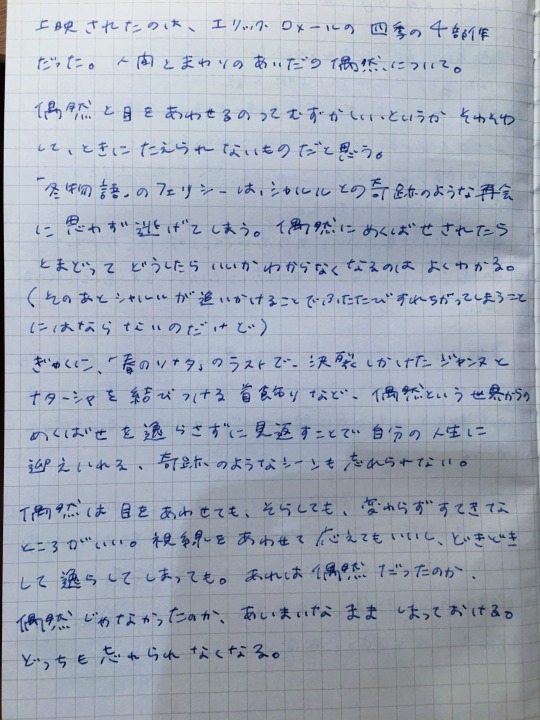 上映されたのは、エリック・ロメールの四季の4部作
だった。人間とまわりのあいだの偶然について。
偶然と目をあわせるのってむずかしい、というか そわそわ
して、ときにたえられないものだと思う。
「冬物語」のフェリシーは、シャルルとの奇跡のような再会
に思わず逃げてしまう。偶然にめくばせされたら
とまどって どうしたらいいかわからなくなるのは よくわかる。
(そのあとシャルルが追いかけることでふたたびすれちがってしまうこと
にはならないのだけど)
ぎゃくに、「春のソナタ」のラストで、決裂しかけたジャンヌと
ナターシャを結びつける首飾りなど、偶然という世界からの
めくばせを逸らさずに見返すことで自分の人生に
迎えいれる、奇跡のようなシーンも忘れられない。
偶然は目をあわせても、そらしても、変わらずすてきな
ところがいい。視線をあわせて応えてもいいし、どきどき
して逸らしてしまっても。あれは偶然だったのか、
偶然じゃなかったのか、あいまいなまましまっておける。
どっちも忘れられなくなる。